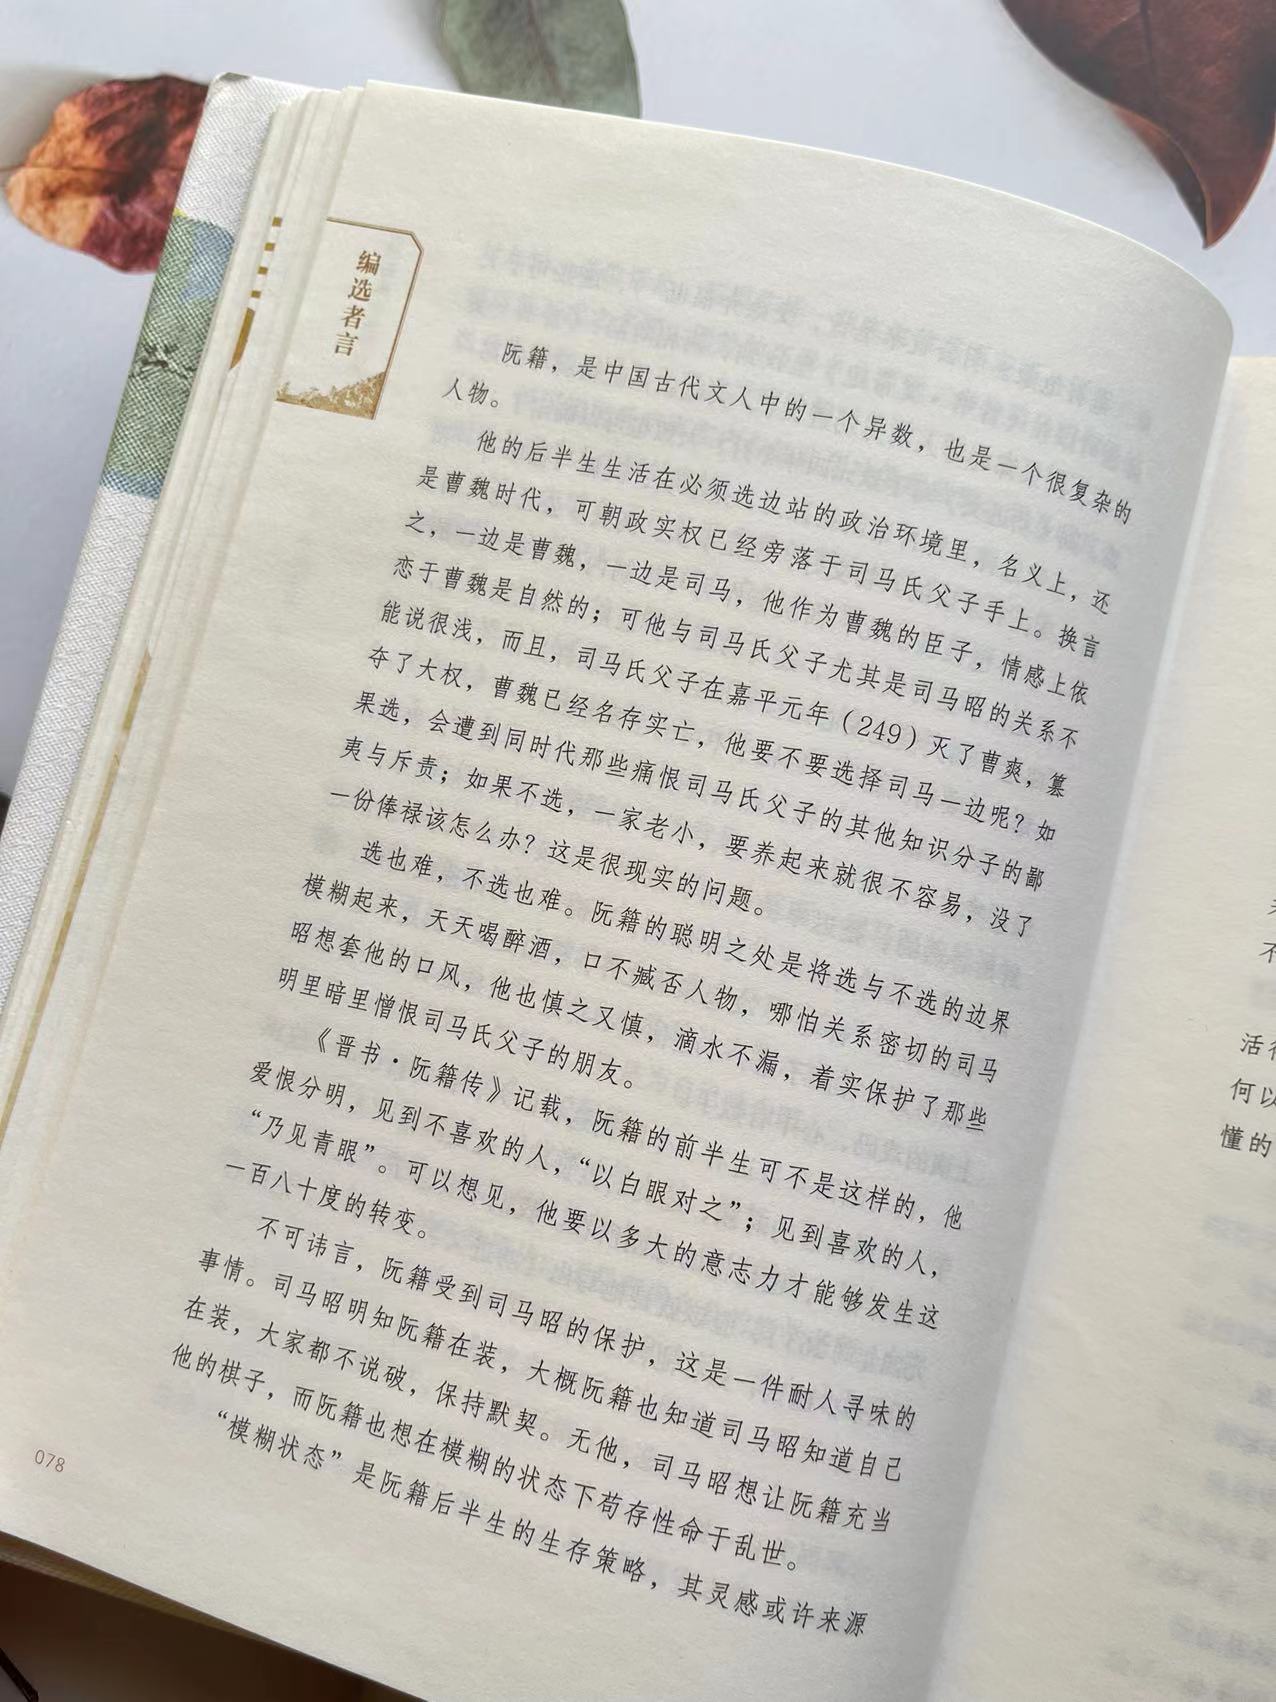 编选者言
阮籍，是中国古代文人中的一个异数，也是一个很复杂的
人物。
他的后半生生活在必须选边站的政治环境里，名义上，还
是曹魏时代，可朝政实权已经旁落于司马氏父子手上。换言
之，一边是曹魏，一边是司马，他作为曹魏的臣子，情感上依
恋于曹魏是自然的；可他与司马氏父子尤其是司马昭的关系不
能说很浅，而且，司马氏父子在嘉平元年（249）灭了曹爽，篡
夺了大权，曹魏已经名存实亡，他要不要选择司马一边呢？如
果选，会遭到同时代那些痛恨司马氏父子的其他知识分子的鄙
夷与斥责；如果不选，一家老小，要养起来就很不容易，没了
一份俸禄该怎么办？这是很现实的问题。
选也难，不选也难。阮籍的聪明之处是将选与不选的边界
模糊起来，天天喝醉酒，口不臧否人物，哪怕关系密切的司马
昭想套他的口风，他也慎之又慎，滴水不漏，着实保护了那些
明里暗里憎恨司马氏父子的朋友。
《晋书·阮籍传》记载，阮籍的前半生可不是这样的，他
爱恨分明，见到不喜欢的人，“以白眼对之”；见到喜欢的人，
“乃见青眼”。可以想见，他要以多大的意志力才能够发生这
一百八十度的转变。
不可讳言，阮籍受到司马昭的保护，这是一件耐人寻味的
事情。司马昭明知阮籍在装，大概阮籍也知道司马昭知道自己
在装，大家都不说破，保持默契。无他，司马昭想让阮籍充当
他的棋子，而阮籍也想在模糊的状态下苟存性命于乱世。
“模糊状态”是阮籍后半生的生存策略，其灵感或许来源
078
不
活得
何以
懂的